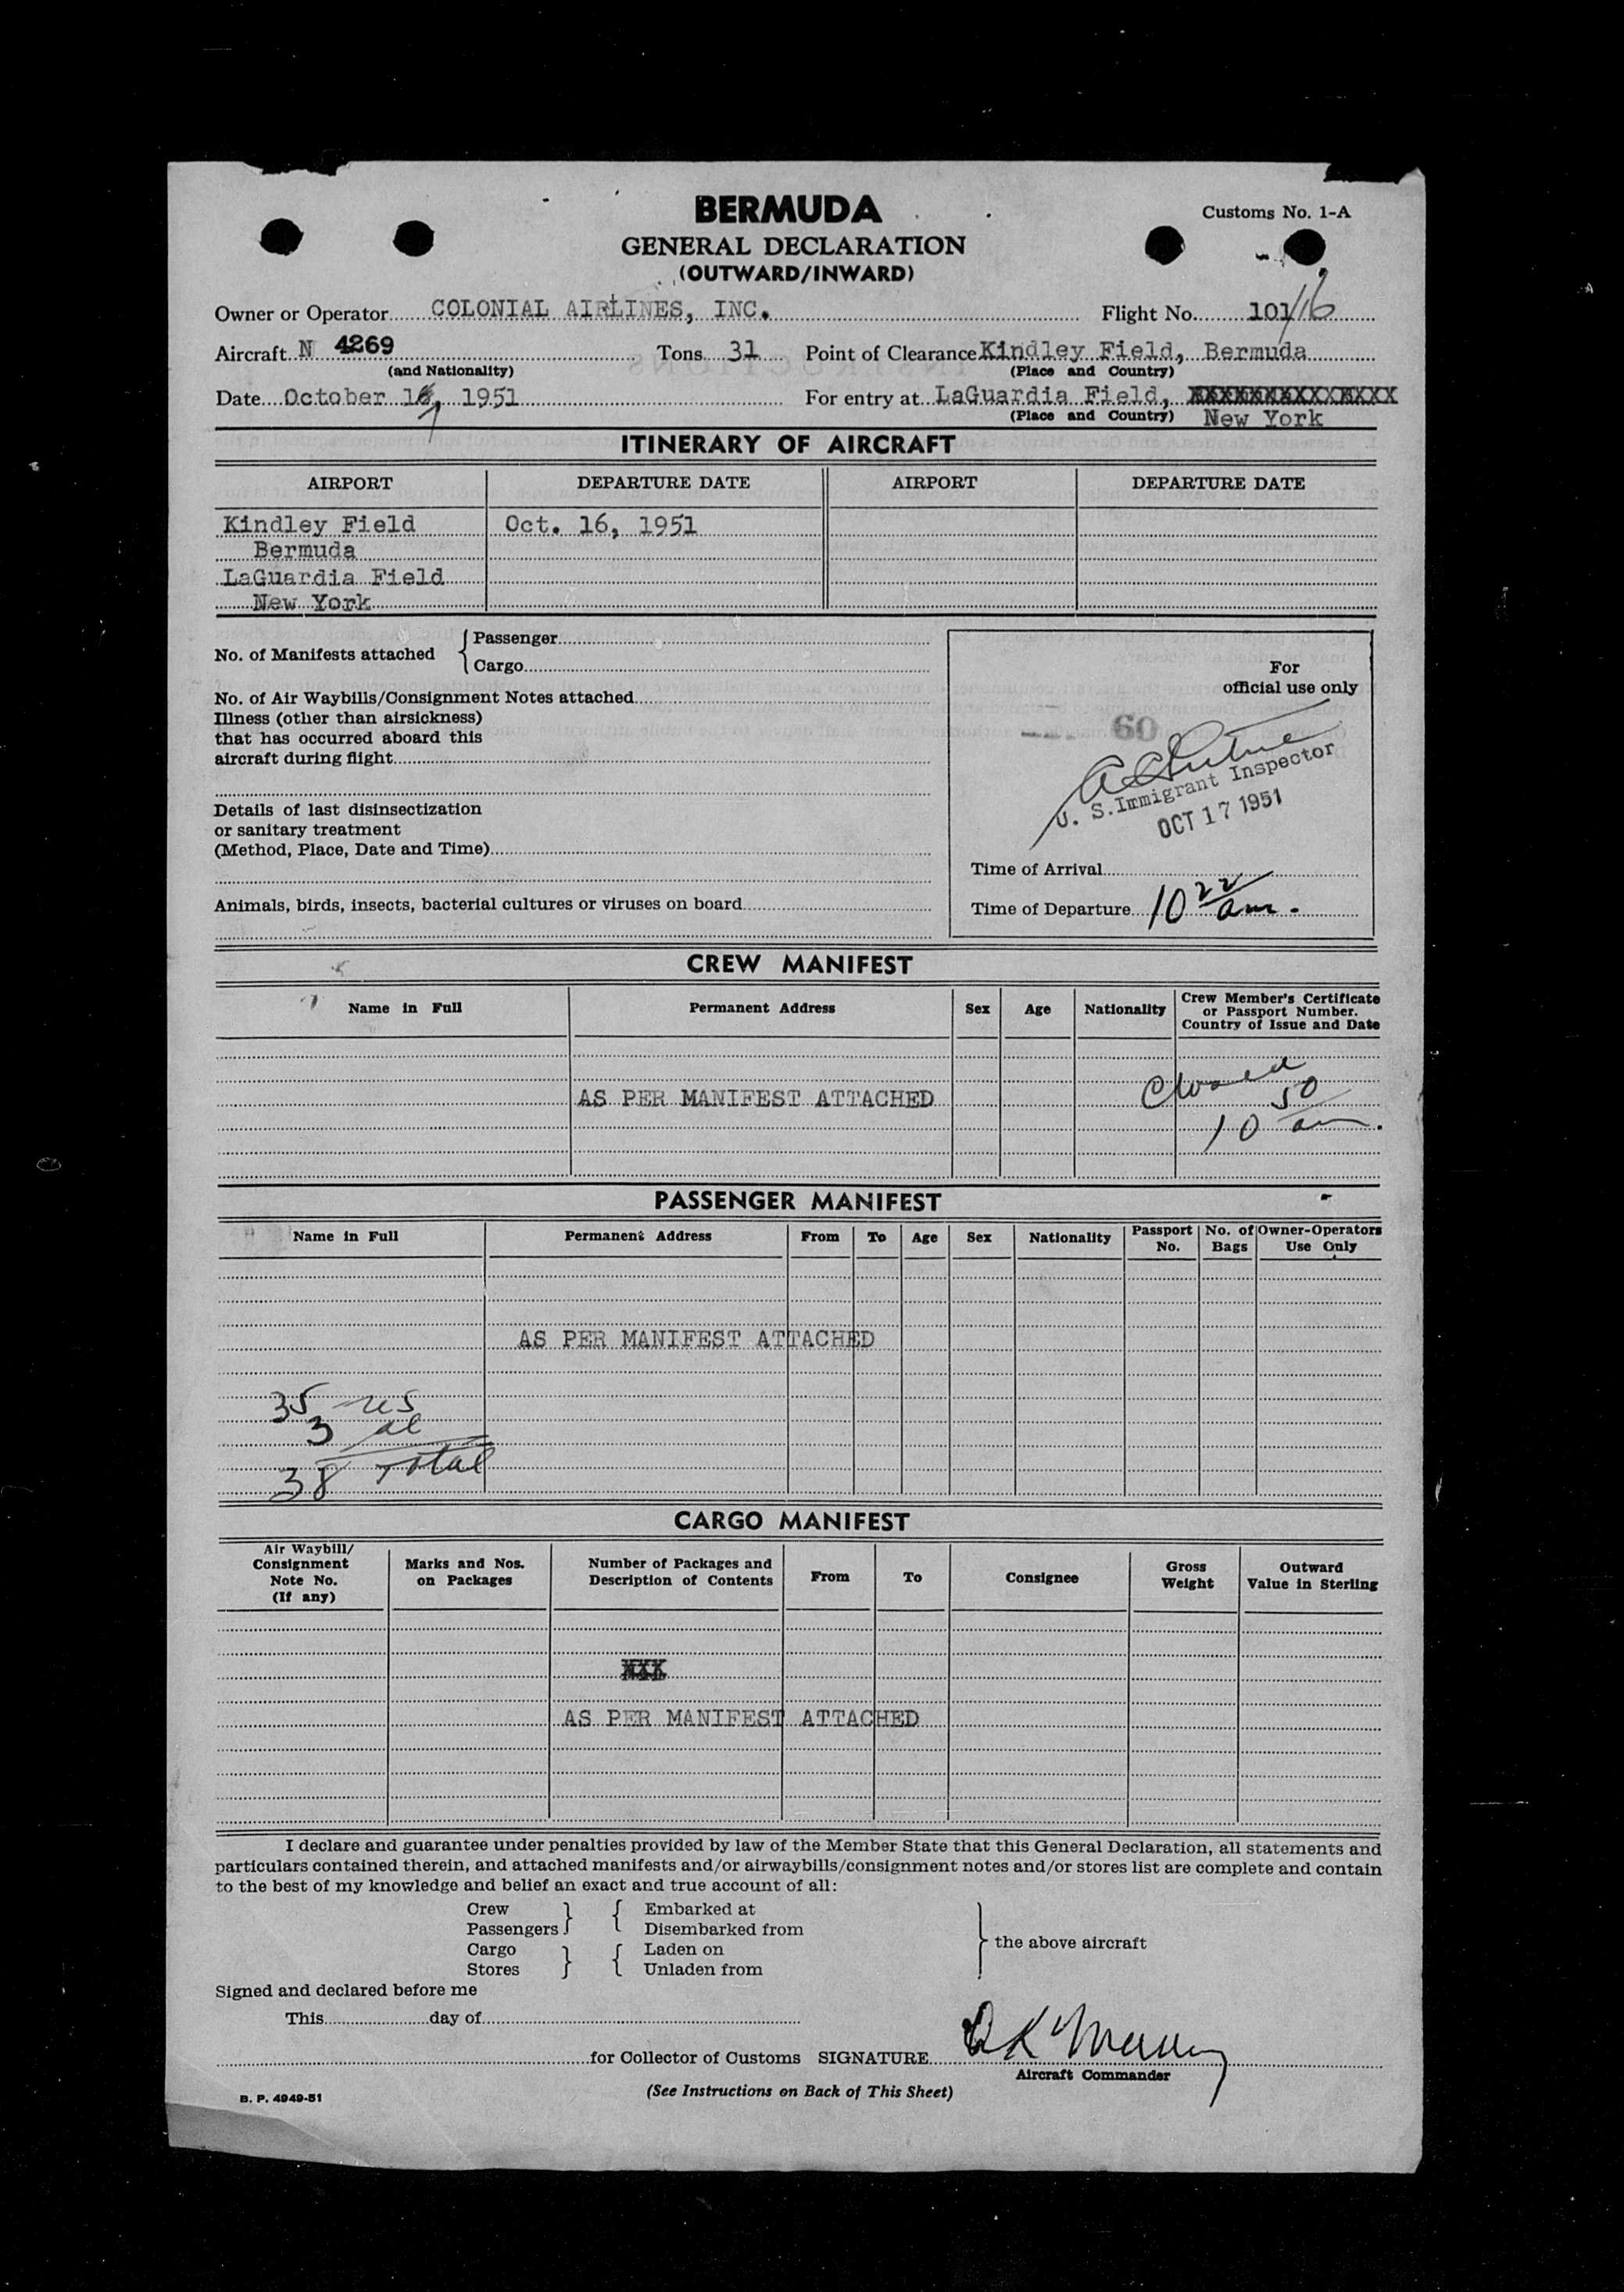 BERMUDA
Customs No. 1-A
GENERAL DECLARATION
(OUTWARD/INWARD)
Owner or Operator COLONIAL AIRLINES, INC. Flight No. 101/16
Aircraft N 4269 Tons 31 Point of Clearance Kindley Field, Bermuda
(and Nationality) (Place and Country)
Date October 16, 1951 For entry at LaGuardia Field,
7 (Place and Country) New York
ITINERARY OF AIRCRAFT
AIRPORT DEPARTURE DATE AIRPORT DEPARTURE DATE
Kindley Field Oct. 16, 1951
Bermuda
LaGuardia Field
New York
No. of Manifests attached { Passenger
Cargo
No. of Air Waybills/Consignment Notes attached
Illness (other than airsickness)
that has occurred aboard this
aircraft during flight
Details of last disinsectization
or sanitary treatment
(Method, Place, Date and Time)
Animals, birds, insects, bacterial cultures or viruses on board
For
official use only
60
U. S. Immigrant Inspector
OCT 17 1951
Time of Arrival
Time of Departure 10 22 am.
CREW MANIFEST
Name in Full Permanent Address Sex Age Nationality Crew Member's Certificate
or Passport Number.
Country of Issue and Date
AS PER MANIFEST ATTACHED
Closed
10 50 am.
PASSENGER MANIFEST
Name in Full Permanent Address From To Age Sex Nationality Passport No. No. of Bags Owner-Operators Use Only
AS PER MANIFEST ATTACHED
35 us
3 al
38 Total
CARGO MANIFEST
Air Waybill/
Consignment
Note No.
(If any)
Marks and Nos.
on Packages
Number of Packages and
Description of Contents
From To Consignee
Gross
Weight
Outward
Value in Sterling
AS PER MANIFEST ATTACHED
I declare and guarantee under penalties provided by law of the Member State that this General Declaration, all statements and
particulars contained therein, and attached manifests and/or airwaybills/consignment notes and/or stores list are complete and contain
to the best of my knowledge and belief an exact and true account of all:
Crew } { Embarked at
Passengers } { Disembarked from
Cargo } { Laden on } the above aircraft
Stores } { Unladen from
Signed and declared before me
This day of
for Collector of Customs SIGNATURE
Aircraft Commander
B. P. 4949-51
(See Instructions on Back of This Sheet)